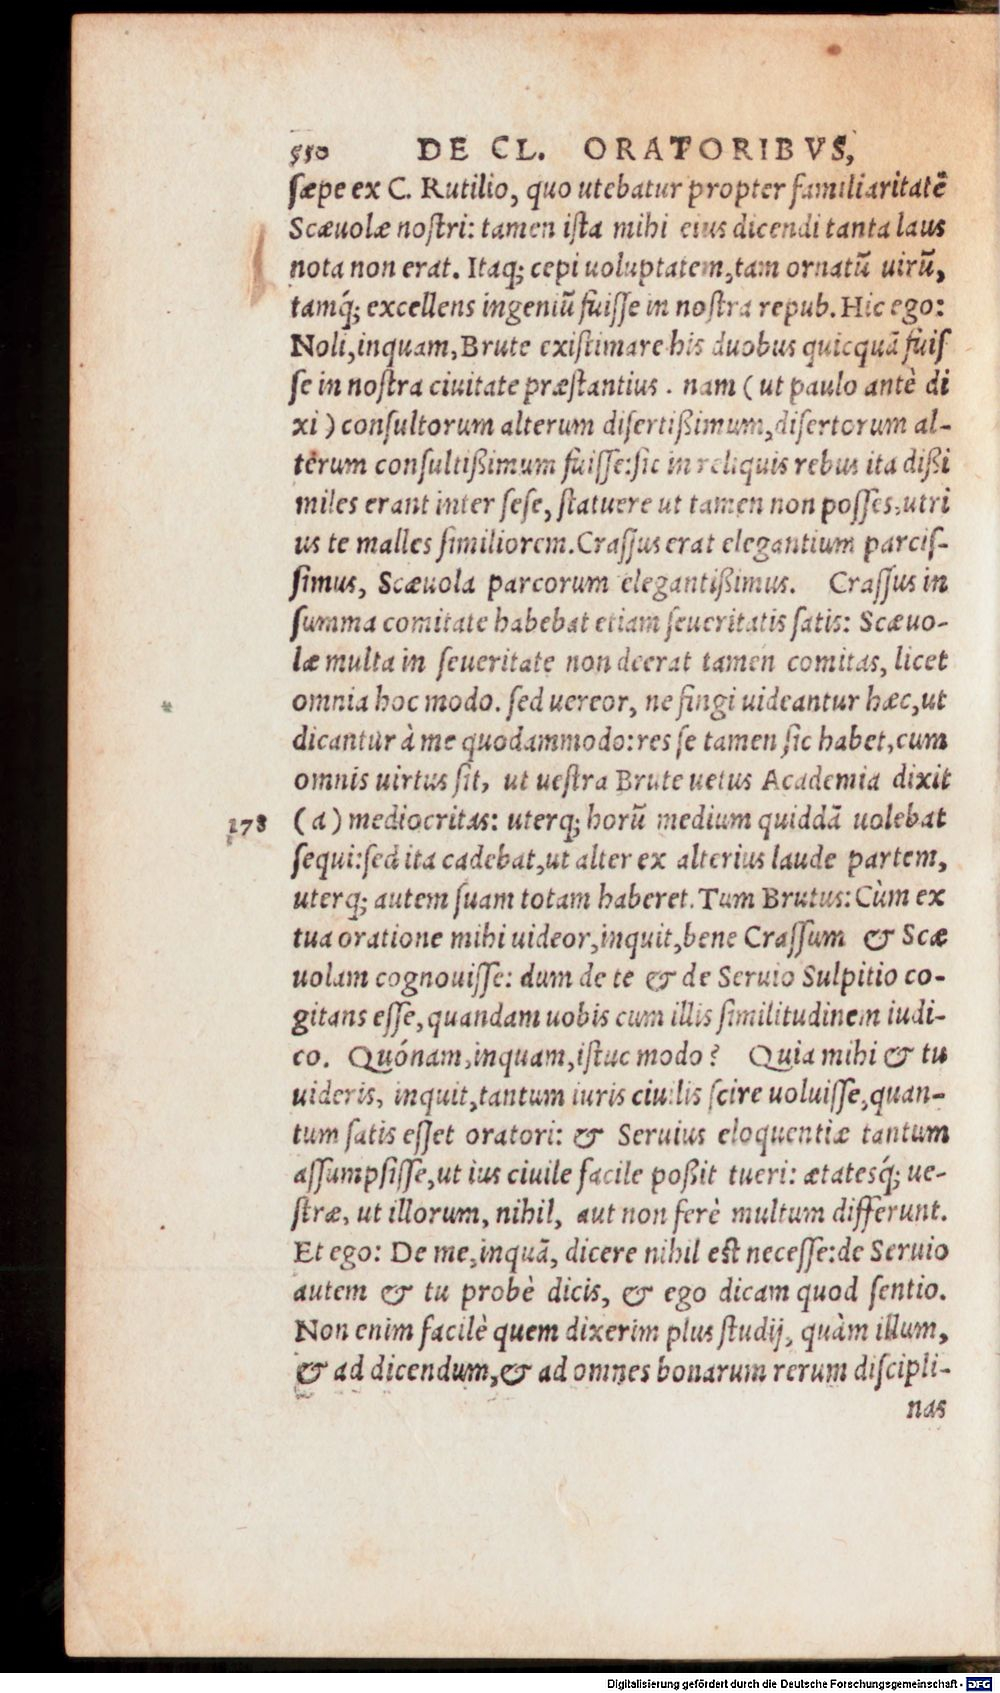 550 DE CL. ORATORIBVS,
sæpe ex C. Rutilio, quo utebatur propter familiaritatẽ
Scæuolæ nostri: tamen ista mihi eius dicendi tanta laus
nota non erat. Itaq; cepi uoluptatem, tam ornatũ uirũ,
tamq́; excellens ingeniũ fuisse in nostra repub. Hic ego:
Noli, inquam, Brute existimare his duobus quicquã fuis
se in nostra ciuitate præstantius. nam ( ut paulo antè di
xi ) consultorum alterum disertißimum, disertorum al-
terum consultißimum fuisse: sic in reliquis rebus ita dißi
miles erant inter sese, statuere ut tamen non posses, utri
us te malles similiorem. Crassus erat elegantium parcis-
simus, Scæuola parcorum elegantißimus. Crassus in
summa comitate habebat etiam seueritatis satis: Scæuo-
læ multa in seueritate non deerat tamen comitas, licet
omnia hoc modo. sed uereor, ne fingi uideantur hæc, ut
dicantur à me quodammodo: res se tamen sic habet, cum
omnis uirtus sit, ut uestra Brute uetus Academia dixit
178 ( a ) mediocritas: uterq; horũ medium quiddã uolebat
sequi: sed ita cadebat, ut alter ex alterius laude partem,
uterq; autem suam totam haberet. Tum Brutus: Cùm ex
tua oratione mihi uideor, inquit, bene Crassum & Scæ
uolam cognouisse: dum de te & de Seruio Sulpitio co-
gitans esse, quandam uobis cum illis similitudinem iudi-
co. Quónam, inquam, istuc modo? Quia mihi & tu
uideris, inquit, tantum iuris ciuilis scire uoluisse, quan-
tum satis esset oratori: & Seruius eloquentiæ tantum
assumpsisse, ut ius ciuile facile poßit tueri: ætatesq́; ue-
stræ, ut illorum, nihil, aut non ferè multum differunt.
Et ego: De me, inquã, dicere nihil est necesse: de Seruio
autem & tu probè dicis, & ego dicam quod sentio.
Non enim facilè quem dixerim plus studij, quàm illum,
& ad dicendum, & ad omnes bonarum rerum discipli-
nas
Digitalisierung gefördert durch die Deutsche Forschungsgemeinschaft - DFG